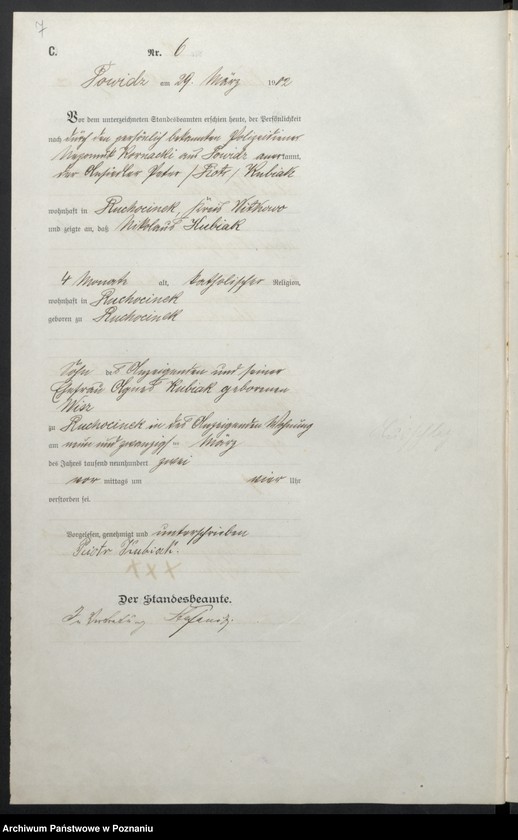 7
C.
Nr. 6
Powidz am 29. März 1902
Vor dem unterzeichneten Standesbeamten erschien heute, der Persönlichkeit
nach durch den persönlich bekannten Polizeidiener
Nepomuk Kornacki aus Powidz anerkannt,
der Ansiedler Peter /Piotr/ Kubiak
wohnhaft in Ruchocinek, Kreis Witkowo
und zeigte an, daß Nikolaus Kubiak
4 Monate alt, katholischer Religion,
wohnhaft in Ruchocinek
geboren zu Ruchocinek
Sohn des Anzeigenden und seiner
Ehefrau Agnes Kubiak geborenen
Wisz
zu Ruchocinek in des Anzeigenden Wohnung
am neun und zwanzigsten März
des Jahres tausend neunhundert zwei
vor mittags um vier Uhr
verstorben sei.
Vorgelesen, genehmigt und unterschrieben
Piotr Kubiak.
+++
Der Standesbeamte.
In Vertretung
Archiwum Państwowe w Poznaniu